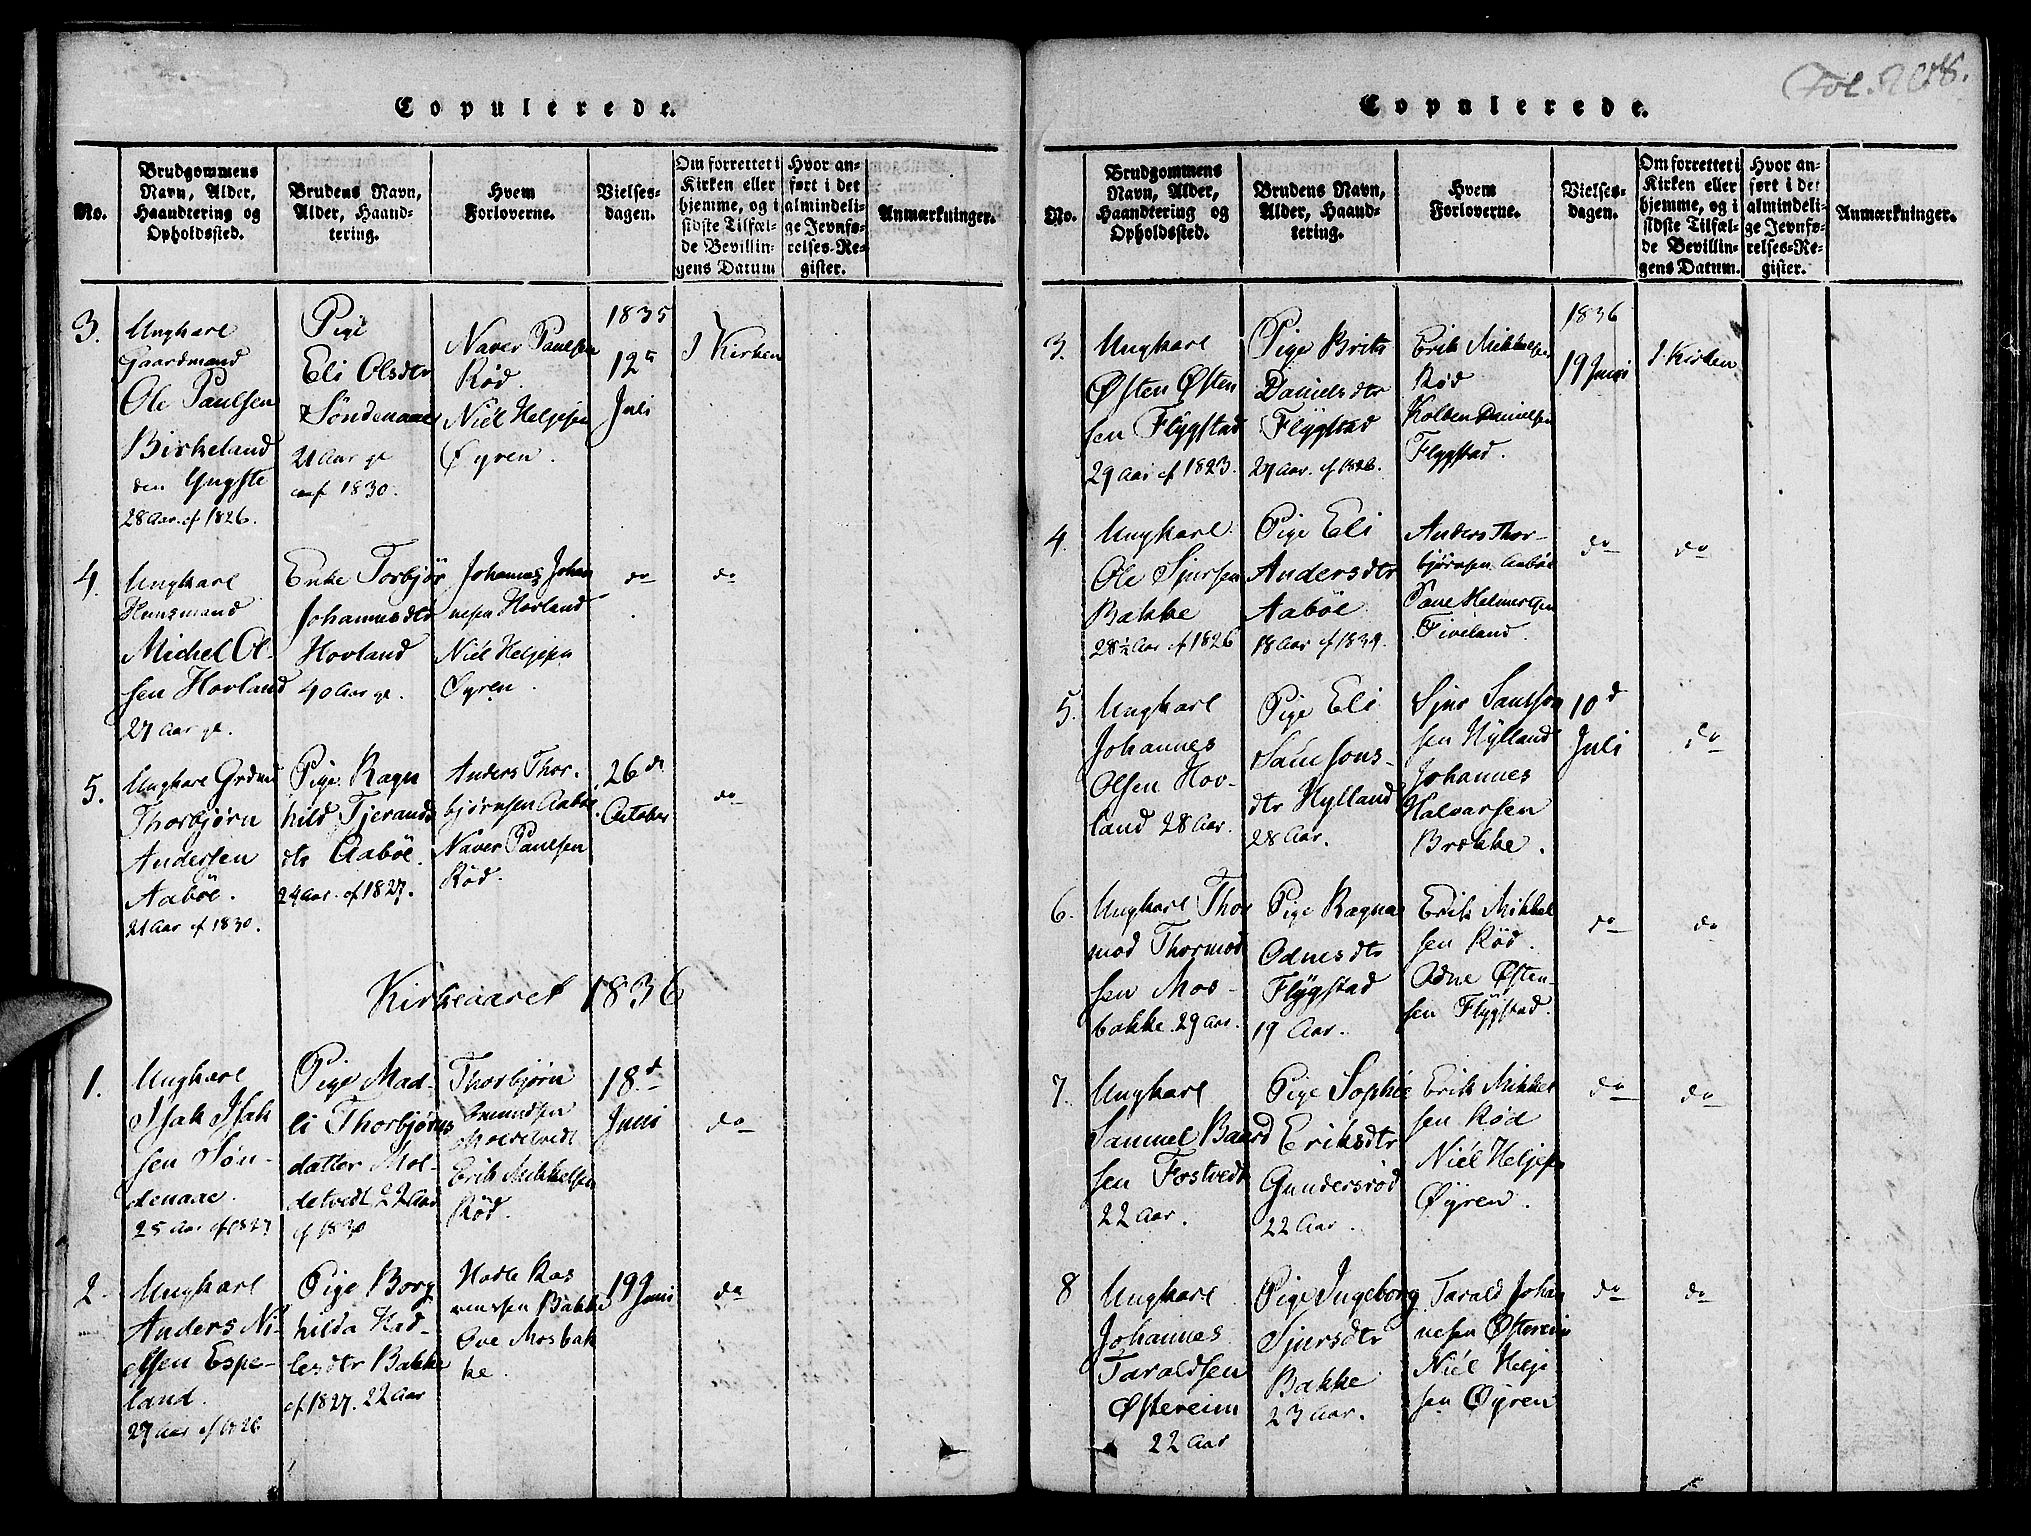 Copulerede.
No.
Brudgommens
Navn, Alder,
Haandtering og
Opholdssted.
Brudens Navn,
Alder, Haand-
tering.
Hvem
Forloverne.
Vielses-
dagen.
Om forrettet i
Kirken eller
hjemme, og i
sidste Tilfæl-
de Bevillin-
gens Datum
Hvor an-
ført i det
almindeli-
ge Jevnfø-
relses-Re-
gister.
Anmærkninger.
3.
Ungkarl
Gaardmand
Ole Paulsen
Birkeland
den Yngste
28 Aar. cf 1826.
Pige
Eli Olsdtr
Søndenaae
21 Aar gl
conf 1830.
Naver Paulsen
Rød.
Niél Heljesen
Øyren.
1835
12
Juli
I Kirken
4.
Ungkarl
Huusmand
Michel Ol-
sen Hovland
27 Aar gl.
Enke Torbjør
Johannesdtr
Hovland
40 Aar gl.
Johannes Johan
nesen Hovland
Niél Heljesen
Øyren.
do
do
5.
Ungkarl Grdmd
Thorbjørn
Andersen
Aabøe.
21 Aar cf 1830.
Pige Ragn
hild Tjerands
dtr Aabøe.
24 Aar. cf 1827.
Anders Thor-
bjørnsen Aabøe
Naver Paulsen
Rød.
26de
October
do
Kirkeaaret 1836
1.
Ungkarl
Isak Isak
sen Søn-
denaae.
25 Aar cf 1827
Pige Mad-
li Thorbjørns
datter Mol-
detvedt 22 Aar
cf 1830
Thorbjørn
Omundsen
Moldetvedt
Erik Mikkelsen
Rød.
18de
Juni
do
2.
Ungkarl
Anders Ni-
elsen Espe-
land.
27 Aar cf 1826
Pige Borg
hilda Had-
lesdtr Bakke
cf 1827. 22 Aar
Hadle Ras
mussen Bakke
Ove Mosbak
ke.
19 Juni
do
Fol. 208.
Copulerede.
No.
Brudgommens
Navn, Alder,
Haandtering og
Opholdssted.
Brudens Navn,
Alder, Haand-
tering.
Hvem
Forloverne.
Vielses-
dagen.
Om forrettet i
Kirken eller
hjemme, og i
sidste Tilfæl-
de Bevillin-
gens Datum.
Hvor an-
ført i det
almindeli-
ge Jevnfø-
relses-Re-
gister.
Anmærkninger.
3.
Ungkarl
Østen Østen
sen Flygstad
29 Aar cf 1823.
Pige Brita
Danielsdtr
Flygstad
27 Aar. cf 1826.
Erik Mikkelsen
Rød
Kolben Danielsen
Flygstad.
1836
19 Juni
I Kirken
4.
Ungkarl
Ole Sjursen
Bakke
28½ Aar cf 1826
Pige Eli
Andersdtr
Aabøe
18 Aar cf 1834.
Anders Thor-
bjørnsen Aabøe
Helmertsen
Tiveland.
do
do
5.
Ungkarl
Johannes
Olsen Hov-
land 28 Aar.
Pige Eli
Samsons-
dtr Hylland
28 Aar.
Sjur Samson
sen Hylland
Johannes
Halvarsen
Brække.
10d
Juli
do
6.
Ungkarl Thor
mod Thormod
sen Mos-
bakke. 29 Aar.
Pige Ragna
Odnesdtr
Flygstad
19 Aar.
Erik Mikkel
sen Rød.
Odne Østen-
sen Flygstad.
do
do
7.
Ungkarl
Samuel Baard
sen Fostvedt
22 Aar.
Pige Sophie
Eriksdtr
Gundersrød
22 Aar.
Erik Mikkel
sen Rød
Niél Heljesen
Øyren.
do
do
8
Ungkarl
Johannes
Taraldsen
Østereim
22 Aar
Pige Ingeborg
Sjursdtr
Bakke
23 Aar.
Tarald Johan
nesen Østereim
Niél Helje
sen Øyren
do
do